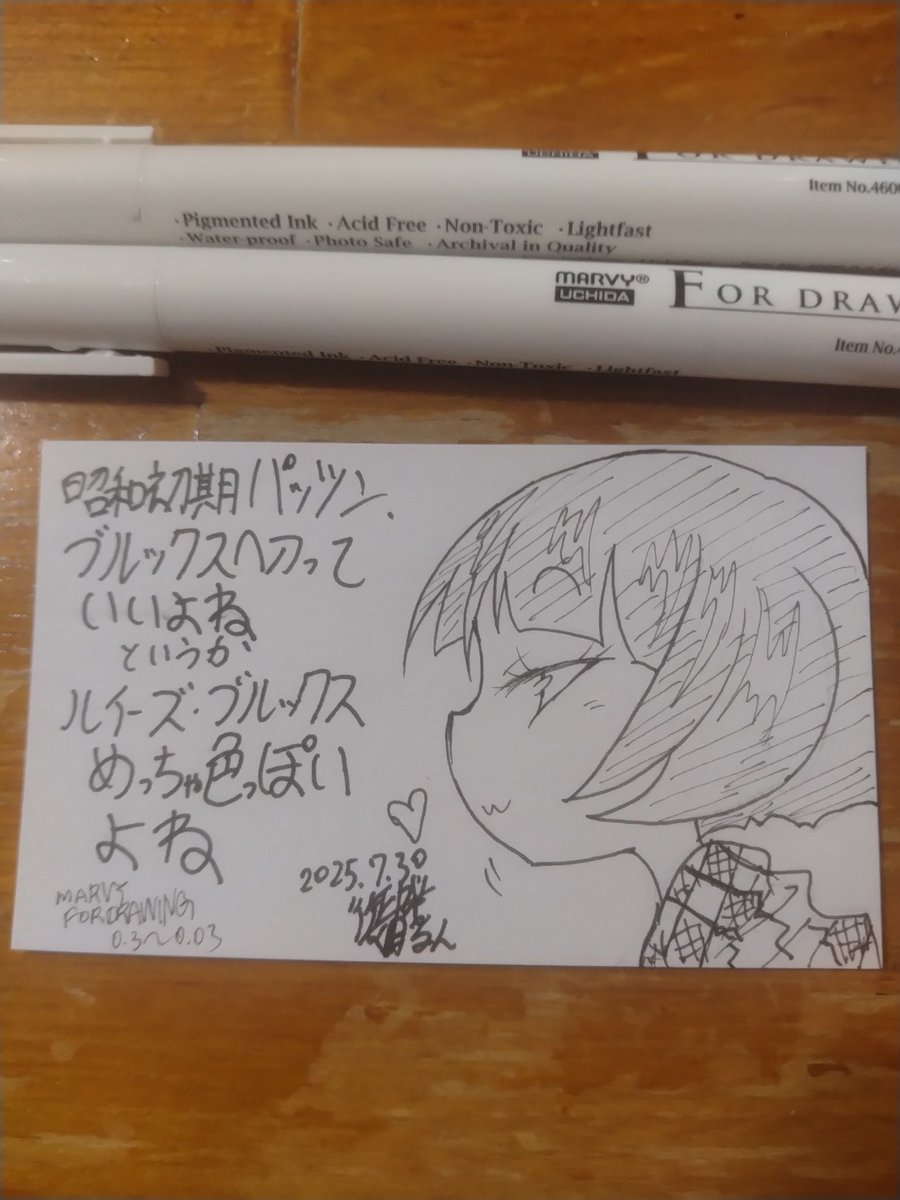 FOR DRAW
Item No.460
·Pigmented Ink ·Acid Free ·Non-Toxic ·Lightfast
·Water-proof ·Photo Safe ·Archival in Quality
MARVY® UCHIDA FOR DRAW
Item No.
·Pigmented Ink ·Acid Free ·Non-Toxic ·Lightfast
昭和初期パッツン、
ブルックスヘアって
いいよね
というか
ルイーズ・ブルックス
めっちゃ色っぽい
よね
2025.7.30
MARVY
FORDRAWING
0.3〜0.03